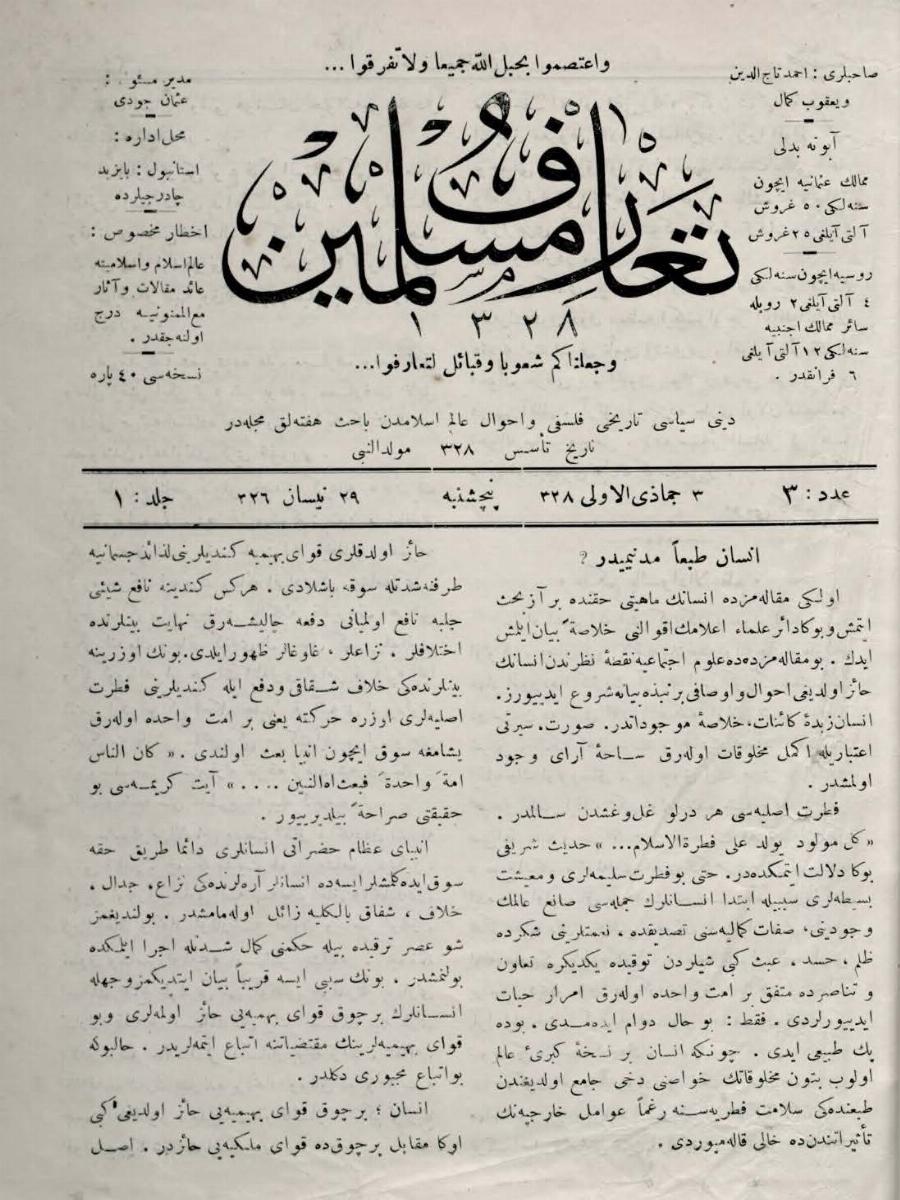 واعتصموا بحبل الله جميعا ولا تفرقوا ...
صاحبلری : احمد تاج الدین
و یعقوب کمال
آبونه بدلی
ممالك عثمانیه ایچون
سنه لکی ٥٠ غروش
آلتی آیلغی ٢٥ غروش
روسیه ایچون سنه لکی
٤ آلتی آیلغی ٢ روبله
سائر ممالك اجنبیه
سنه لکی ١٢ آلتی آیلغی
٦ فرانقدر .
تعارف مسلمین
١٣٢٨
وجعلناکم شعوبا وقبائل لتعارفوا ...
مدیر مسئول :
عثمان جودی
محل اداره :
استانبول : بایزید
چادرجیلرده
اخطار مخصوص :
عالم اسلام واسلامیته
عائد مقالات وآثار
مع الممنونیه درج
اولنه جقدر .
نسخه سی ٤٠ پاره
دینی سیاسی تاریخی فلسفی و احوال عالم اسلامدن باحث هفته لق مجله در
تاریخ تأسس ٣٢٨ مولد النبی
عدد : ٣ ٣ جماذی الاولی ٣٢٨ پنچشنبه ٢٩ نیسان ٣٢٦ جلد : ١
انسان طبعاً مدنیمیدر ؟
اولکی مقاله مزده انسانك ماهیتی حقنده بر آز بحث
ایتمش و بوکا دائر علماء اعلامك اقوالنی خلاصةً بیان ایلمش
ایدك . بو مقاله مزده ده علوم اجتماعیه نقطهٔ نظرندن انسانك
حائز اولدیغی احوال و اوصافی بر نبذه بیانه شروع ایدییورز.
انسان زبدهٔ کائنات، خلاصهٔ موجوداتدر. صورت. سیرتی
اعتباریله اکمل مخلوقات اوله رق ساحهٔ آرای وجود
اولمشدر .
فطرت اصلیه سی هر درلو غل و غشدن سالمدر .
« کل مولود یولد علی فطرة الاسلام... » حدیث شریفی
بوکا دلالت ایتمکده در. حتی بو فطرت سلیمه لری و معیشت
بسیطه لری سببیله ابتدا انسانلرك جمله سی صانع عالمك
وجودینی، صفات کمالیه سنی تصدیقده ، نعمتلرینی شکرده
ظلم ، حسد ، عبث کبی شیلردن توقیده یکدیکره تعاون
و تناصرده متفق بر امت واحده اوله رق امرار حیات
ایدییورلردی . فقط : بو حال دوام ایده مدی . بوده
پك طبیعی ایدی . چونکه انسان بر نسخهٔ کبرئ عالم
اولوب بتون مخلوقاتك خواصنی دخی جامع اولدیغندن
طبعنده کی سلامت فطریه سنه رغماً عوامل خارجیه نك
تأثیراتندن ده خالی قاله میوردی .
حائز اولدقلری قوای بهیمیه کندیلرینی لذائذ جسمانیه
طرفنه شدتله سوقه باشلادی . هرکس کندینه نافع شیئی
جلبه نافع اولمیانی دفعه چالیشه رق نهایت بینلرنده
اختلافلر . نزاعلر ، غاوغالر ظهور ایلدی. بونك اوزرینه
بینلرنده کی خلاف شقاقی ودفع ایله کندیلرینی فطرت
اصلیه لری اوزره حرکته یعنی بر امت واحده اوله رق
یشامغه سوق ایچون انبیا بعث اولندی . « کان الناس
امةً واحدةً فبعث الله النبین .... » آیت کریمه سی بو
حقیقتی صراحةً بیلدیرییور .
انبیای عظام حضراتی انسانلری دائما طریق حقه
سوق ایده کلمشلر ایسه ده انسانلر آره لرنده کی نزاع ، جدال ،
خلاف ، شقاق بالکلیه زائل اوله مامشدر . بولندیغمز
شو عصر ترقیده بیله حکمنی کمال شدتله اجرا ایتمکده
بولنمشدر . بونك سببی ایسه قریباً بیان ایتدیکمز وجهله
انسانلرك بر چوق قوای بهیمیه یی حائز اولمه لری و بو
قوای بهیمیه لرینك مقتضیاتنه اتباع ایتمه لریدر . حالبوکه
بو اتباع مجبوری دکلدر .
انسان ؛ بر چوق قوای بهیمیه یی حائز اولدیغی کبی
اوکا مقابل بر چوق ده قوای ملکیه یی حائزدر . اصل